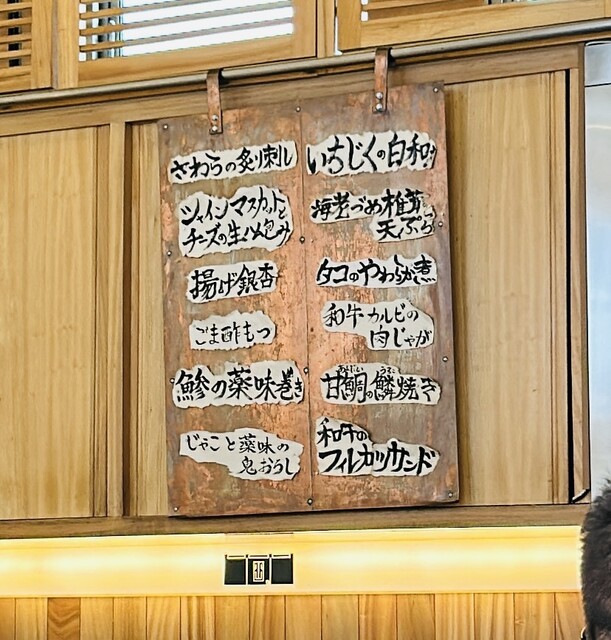 いちじくの白和え
海老づめ椎茸の
天ぷら
タコのやわらか煮
和牛カルビの
肉じゃが
あまだい うろこ
甘鯛の鱗焼き
和牛の
フィレカツサンド
さわらの炙り刺し
シャインマスカットと
チーズの生ハム包み
揚げ銀杏
ごま酢もつ
鯵の薬味巻き
じゃこと薬味の
鬼おろし